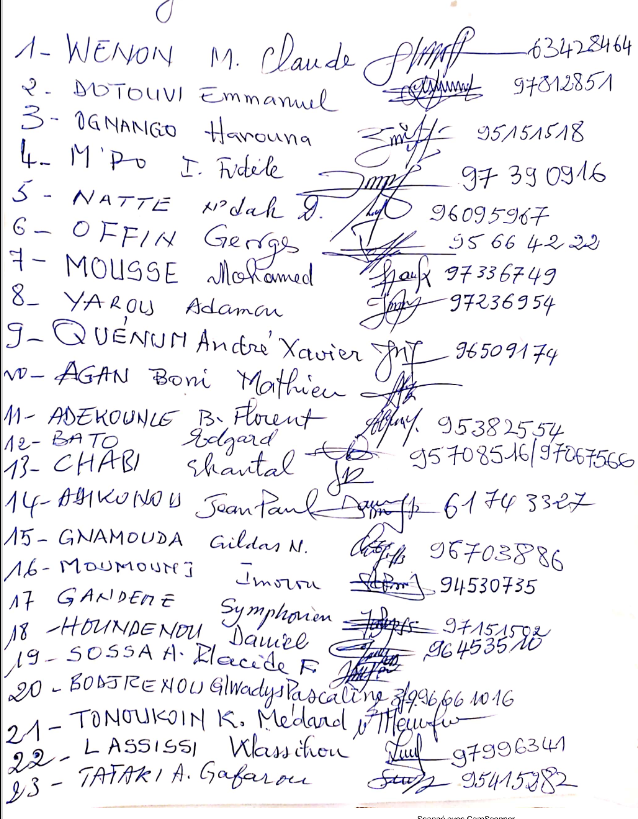 1- WENON M. Claude 63428464
2- DOTOUVI Emmanuel 97812851
3- OGNANGO Harouna 95151518
4- M'PO I. Fidèle 97 390916
5- NATTE N'dah D. 96095967
6- OFFIN Georges 95 66 42 22
7- MOUSSE Mohamed 97336749
8- YAROU Adamou 97236954
9- QUÉNUM André Xavier 96509174
10- AGAN Boni Mathieu
11- ADEKOUNLE B. Florent 95382554
12- BATO Edgard
13- CHABI Chantal 95708516/97067566
14- Jean Paul 61743327
15- GNAMOUDA Gildas N. 96703886
16- MOUMOUNI Imorou 94530735
17 GANDEME Symphorien 97151502
18 -HOUNDENOU Daniel 96453510
19- SOSSA A. Placide F.
20- BODJRENOU Glwadys Pascaline 96661016
21- TONOUKOIN K. Médard
22- LASSISSI Wassihou 97996341
23- TAFARI A. Gafarou 95415282